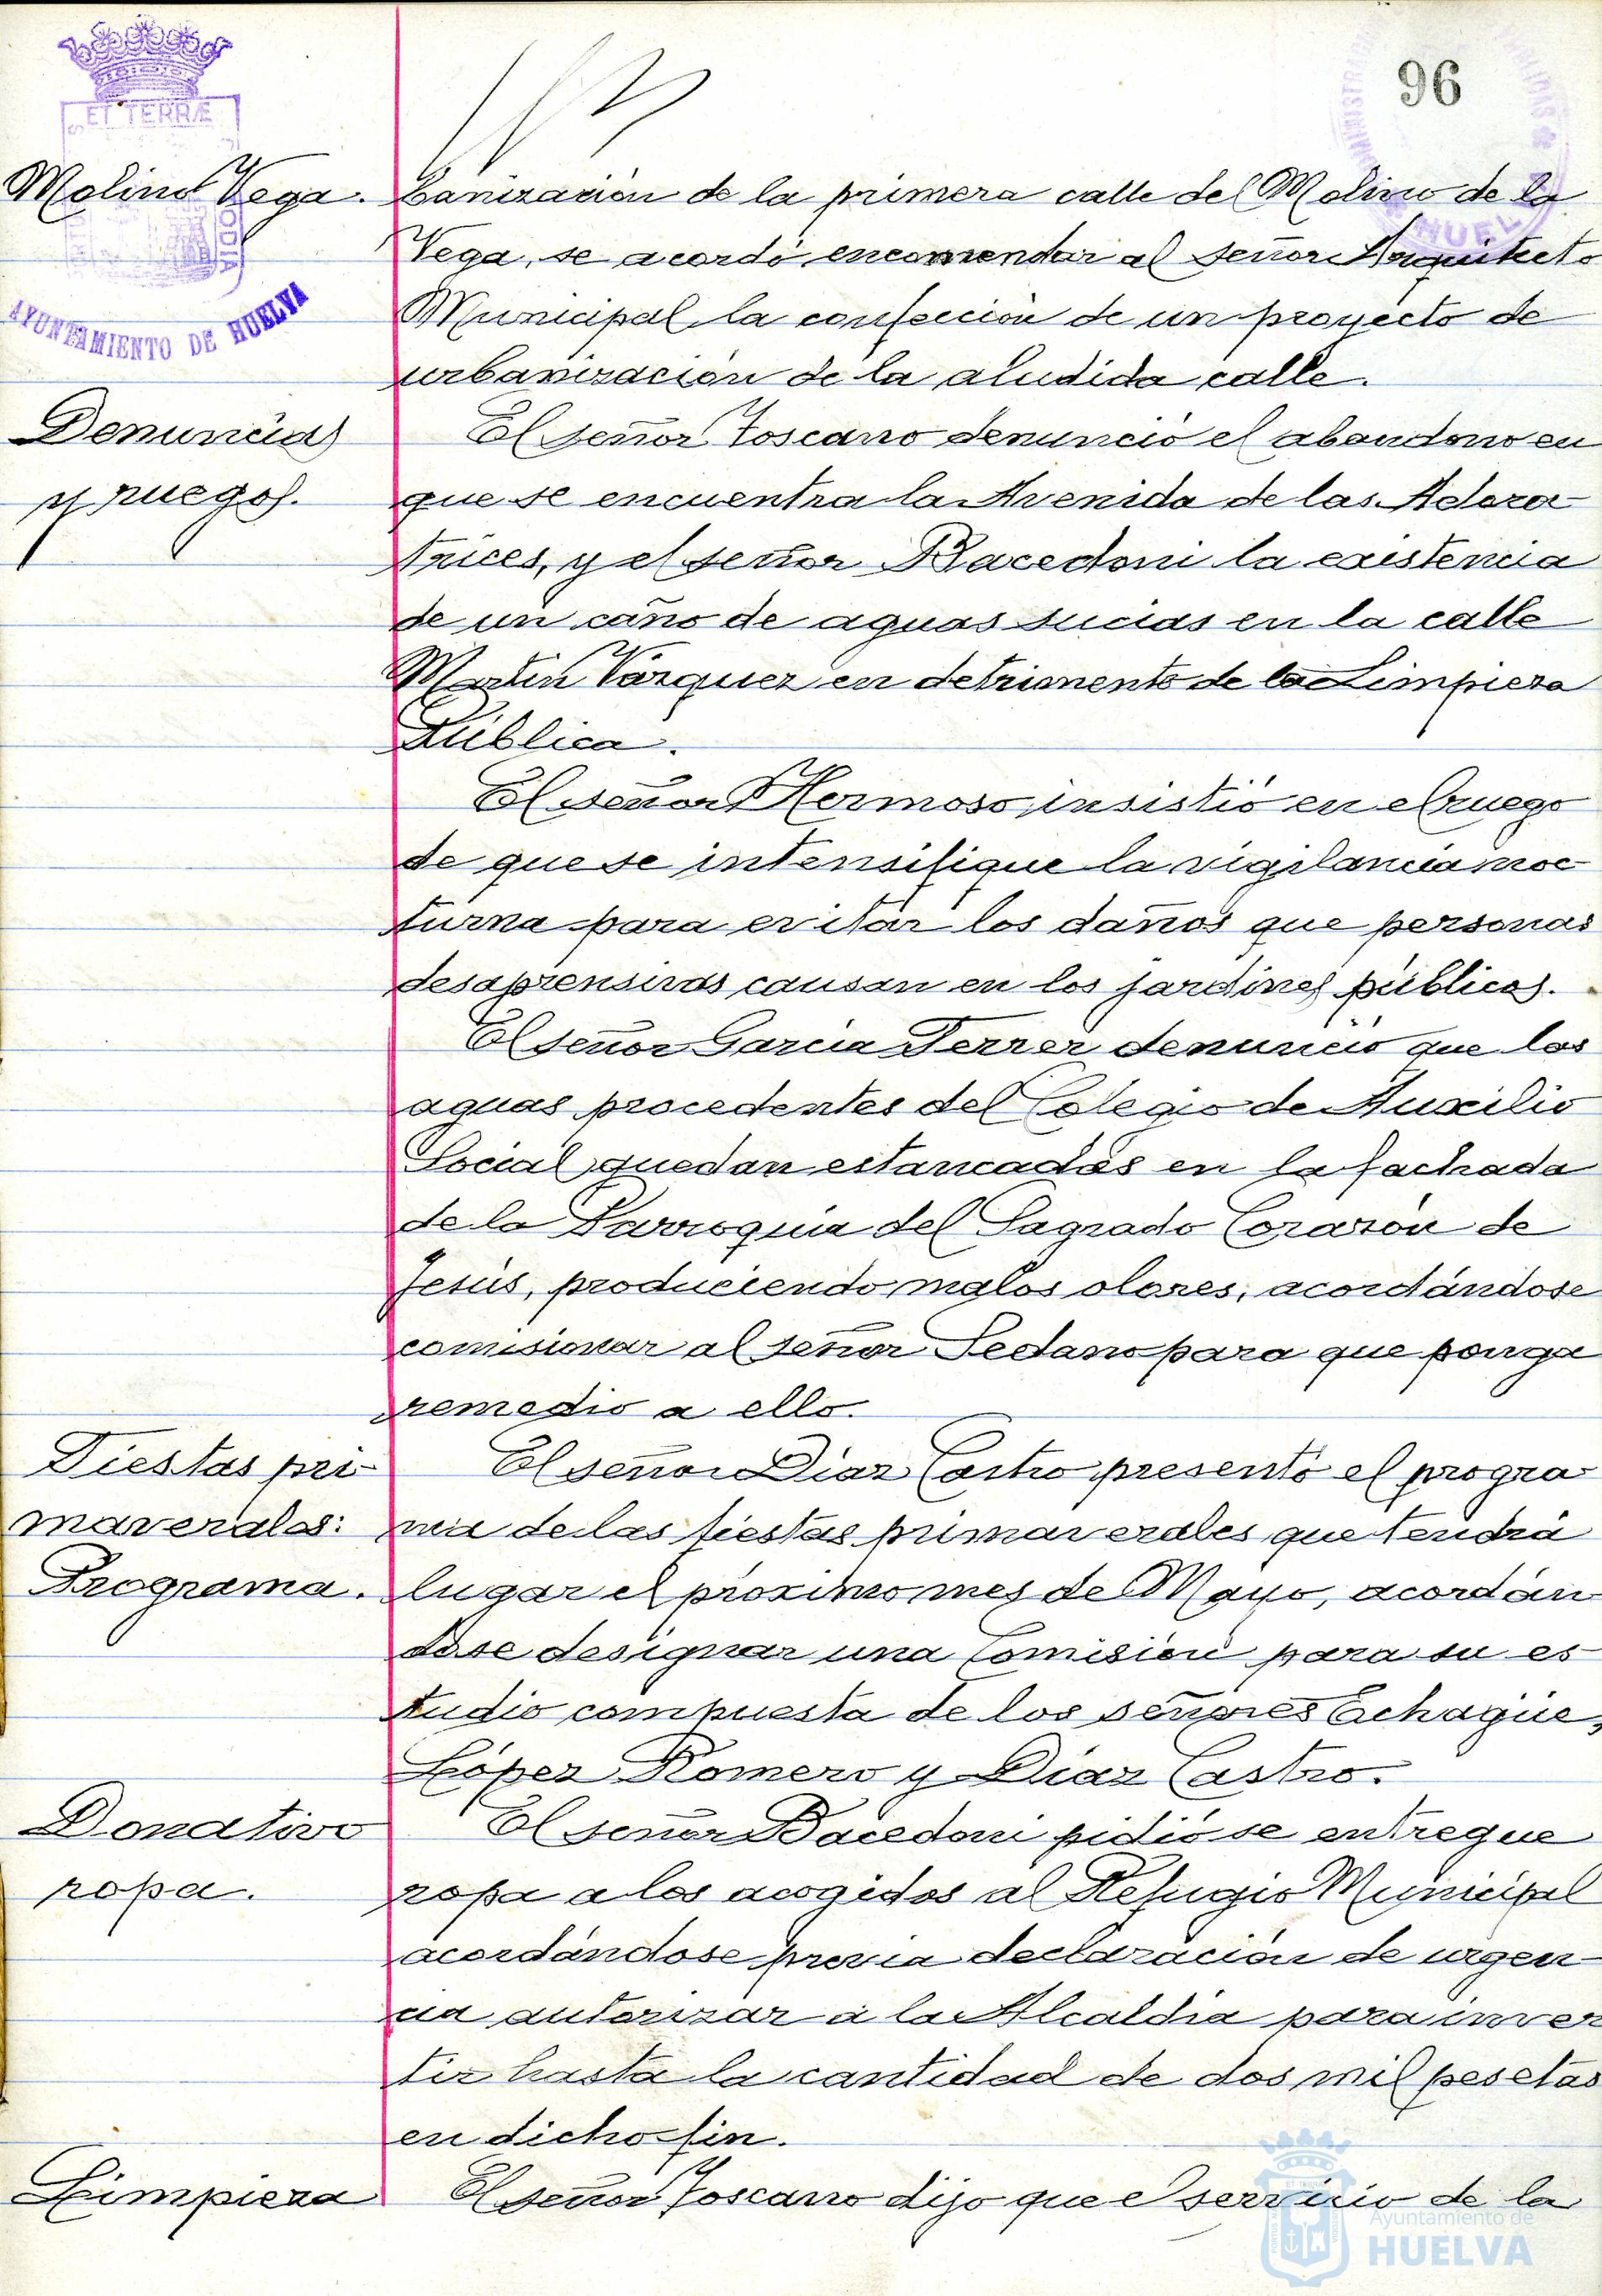 96
ET TERRÆ
AYUNTAMIENTO DE HUELVA
HUEL
Molino Vega.
banización de la primera calle del Molino de la
Vega, se acordó encomendar al señor Arquitecto
Municipal la confección de un proyecto de
urbanización de la aludida calle.
Denuncias
y ruegos.
El señor Toscano denunció el abandono en
que se encuentra la Avenida de las Adora-
trices, y el señor Bacedoni la existencia
de un caño de aguas sucias en la calle
Martín Vázquez en detrimento de la Limpieza
Pública.
El señor Hermoso insistió en el ruego
de que se intensifique la vigilancia noc-
turna para evitar los daños que personas
desaprensivas causan en los jardines públicos.
El señor García Ferrer denunció que las
aguas procedentes del Colegio de Auxilio
Social quedan estancadas en la fachada
de la Parroquia del Sagrado Corazón de
Jesús, produciendo malos olores, acordándose
comisionar al señor Sedano para que ponga
remedio a ello.
Fiestas pri-
maverales:
Programa.
El señor Díaz Castro presentó el progra-
ma de las fiestas primaverales que tendrá
lugar el próximo mes de Mayo, acordán-
dose designar una Comisión para su es-
tudio compuesta de los señores Echagüe,
López Romero y Díaz Castro.
Donativo
ropa.
El señor Bacedoni pidió se entregue
ropa a los acogidos al Refugio Municipal
acordándose previa declaración de urgen-
cia autorizar a la Alcaldía para inver
tir hasta la cantidad de dos mil pesetas
en dicho fin.
Limpieza
El señor Toscano dijo que el servicio de la
Ayuntamiento de
HUELVA